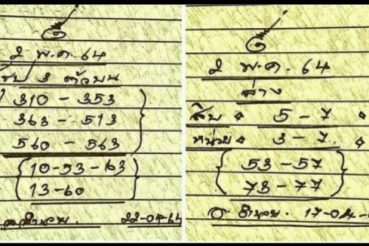 2 พ.ค. 64
3 ตัวบน
310 - 353
363 - 513
560 - 563
10-53-63
13-60
22-04-64
2 พ.ค. 64
ล่าง
สิบ 5 - 7
หน่วย 3 - 7
53-57
73-77